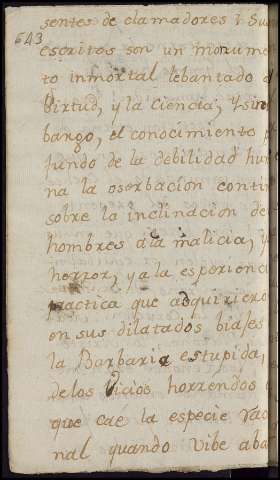 sentes de clamadores i Sus
643
escritos son un monume
to inmortal lebantado a
Birtud, y la Ciencia; y sin
bargo, el conocimiento
fundo de la debilidad hu
na la oserbacion contin
sobre la inclinacion de
hombres ala malicia, y
herror, y a la esperienci
practica que adquiriero
en sus dilatados biajes
la Barbarie estupida,
delos Vicios horrendos
que cae la especie rac
nal quando vibe aba